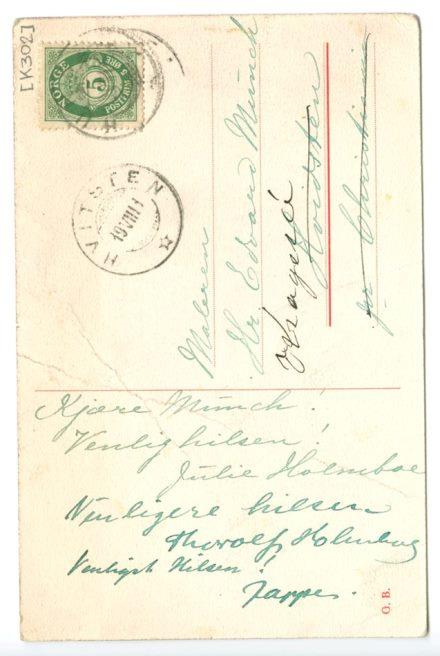 [K302]
NORGE
5
POSTFRIM. 5 ØRE
HVITSTEN
19 VIII
Maleren
Hr Edvard Munch
Kragerø
Hvidsten
pr Christiania
Kjære Munch!
Venlig hilsen!
Julie Holmboe
Venligere hilsen
Thorolf Holmboe
Venligst Hilsen!
Jappe.
O. B.